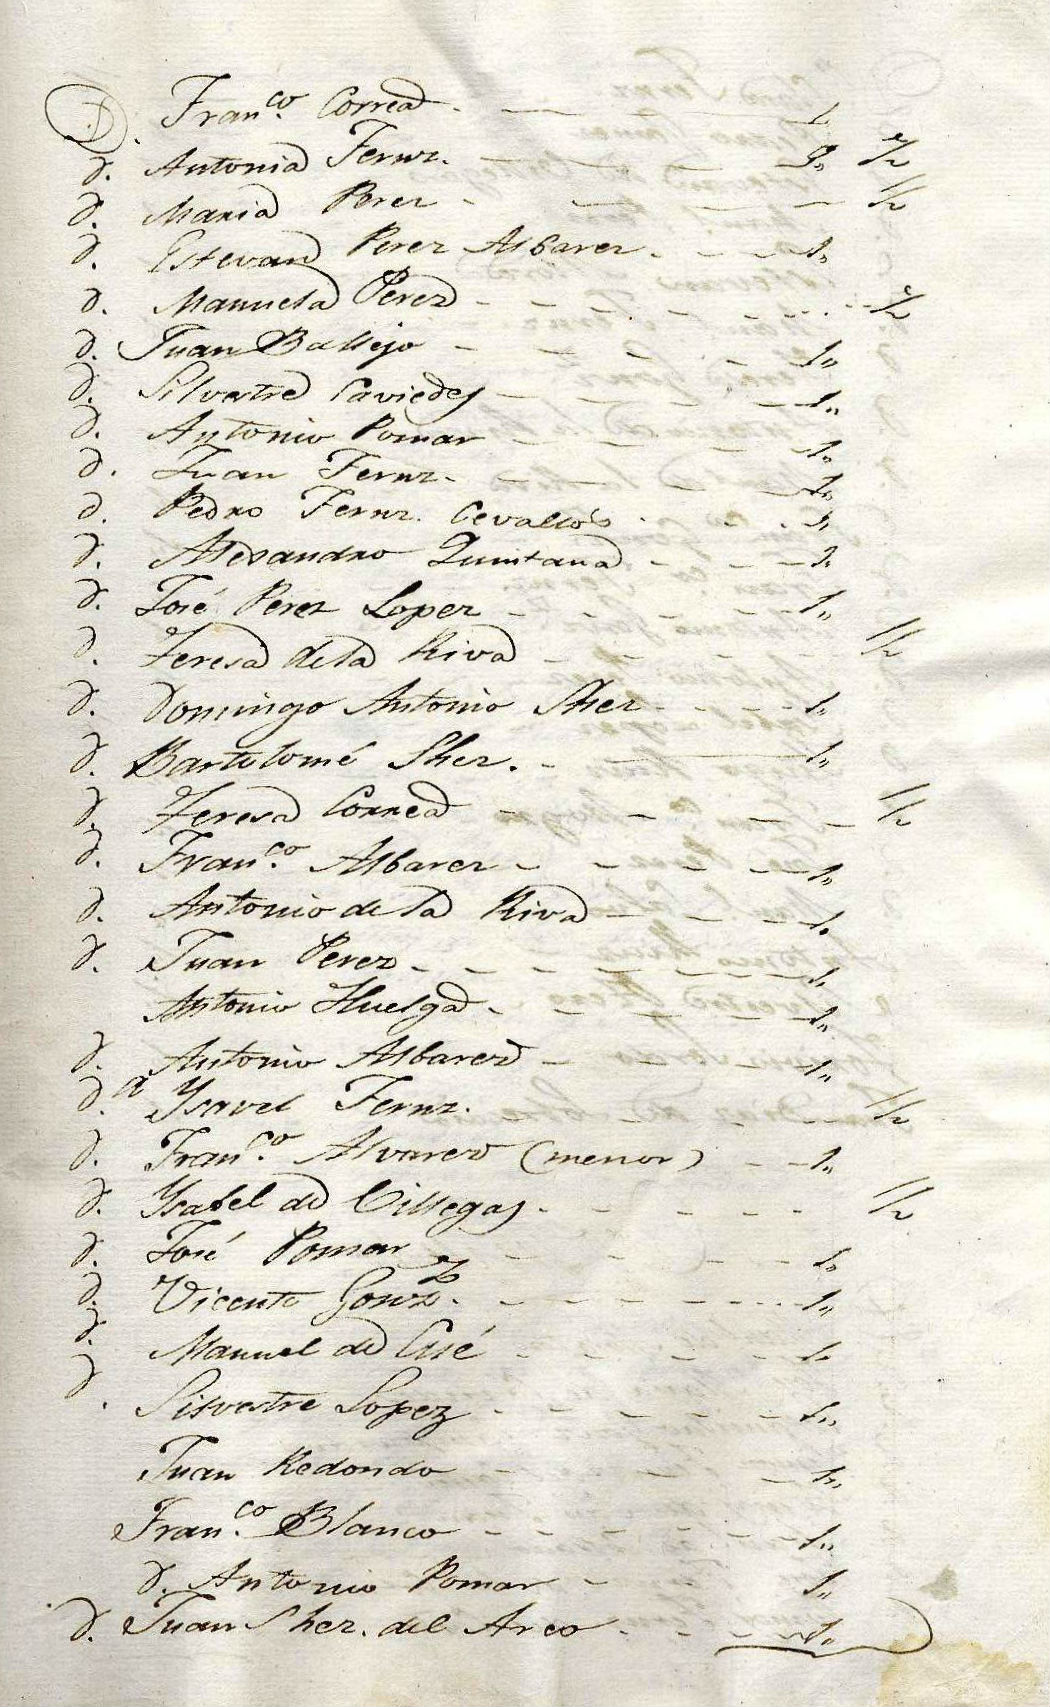 D. Fran.co Correa - 1
d. Antonia Fernz. - ½
d. Maria Perez - ½
d. Estevan Perez Albarez - 1,,
d. Manuela Perez - ½
d. Juan Ballejo - 1,,
d. Silvestre Caviedes - 1,,
d. Antonio Pomar - 1,,
d. Juan Fernz. - 1,,
d. Pedro Fernz. Cevallos - 1,,
d. Alexandro Quintana - 1,,
d. José Perez Lopez - 1,,
d. Teresa de la Riva - ½
d. Domingo Antonio Shez - 1,,
d. Bartolomé Shez. - 1,,
d. Teresa Correa - ½
d. Fran.co Albarez - 1,,
d. Antonio de la Riva - 1,,
d. Juan Perez - 1,,
Antonio Huelga - 1,,
d. Antonio Albarez - 1,,
d.a Ysavel Fernz. ½
d. Fran.co Alvarez (menor) - 1,,
d. Ysabel de Villegas - ½
d. José Pomar - 1,,
d. Vicente Gonz. - 1,,
d. Manuel de - 1,,
d. Silvestre Lopez - 1,,
Juan Redondo - 1,,
Fran.co Blanco - 1,,
d. Antonio Pomar - 1,,
d. Juan Shez. del Arco - 1,,